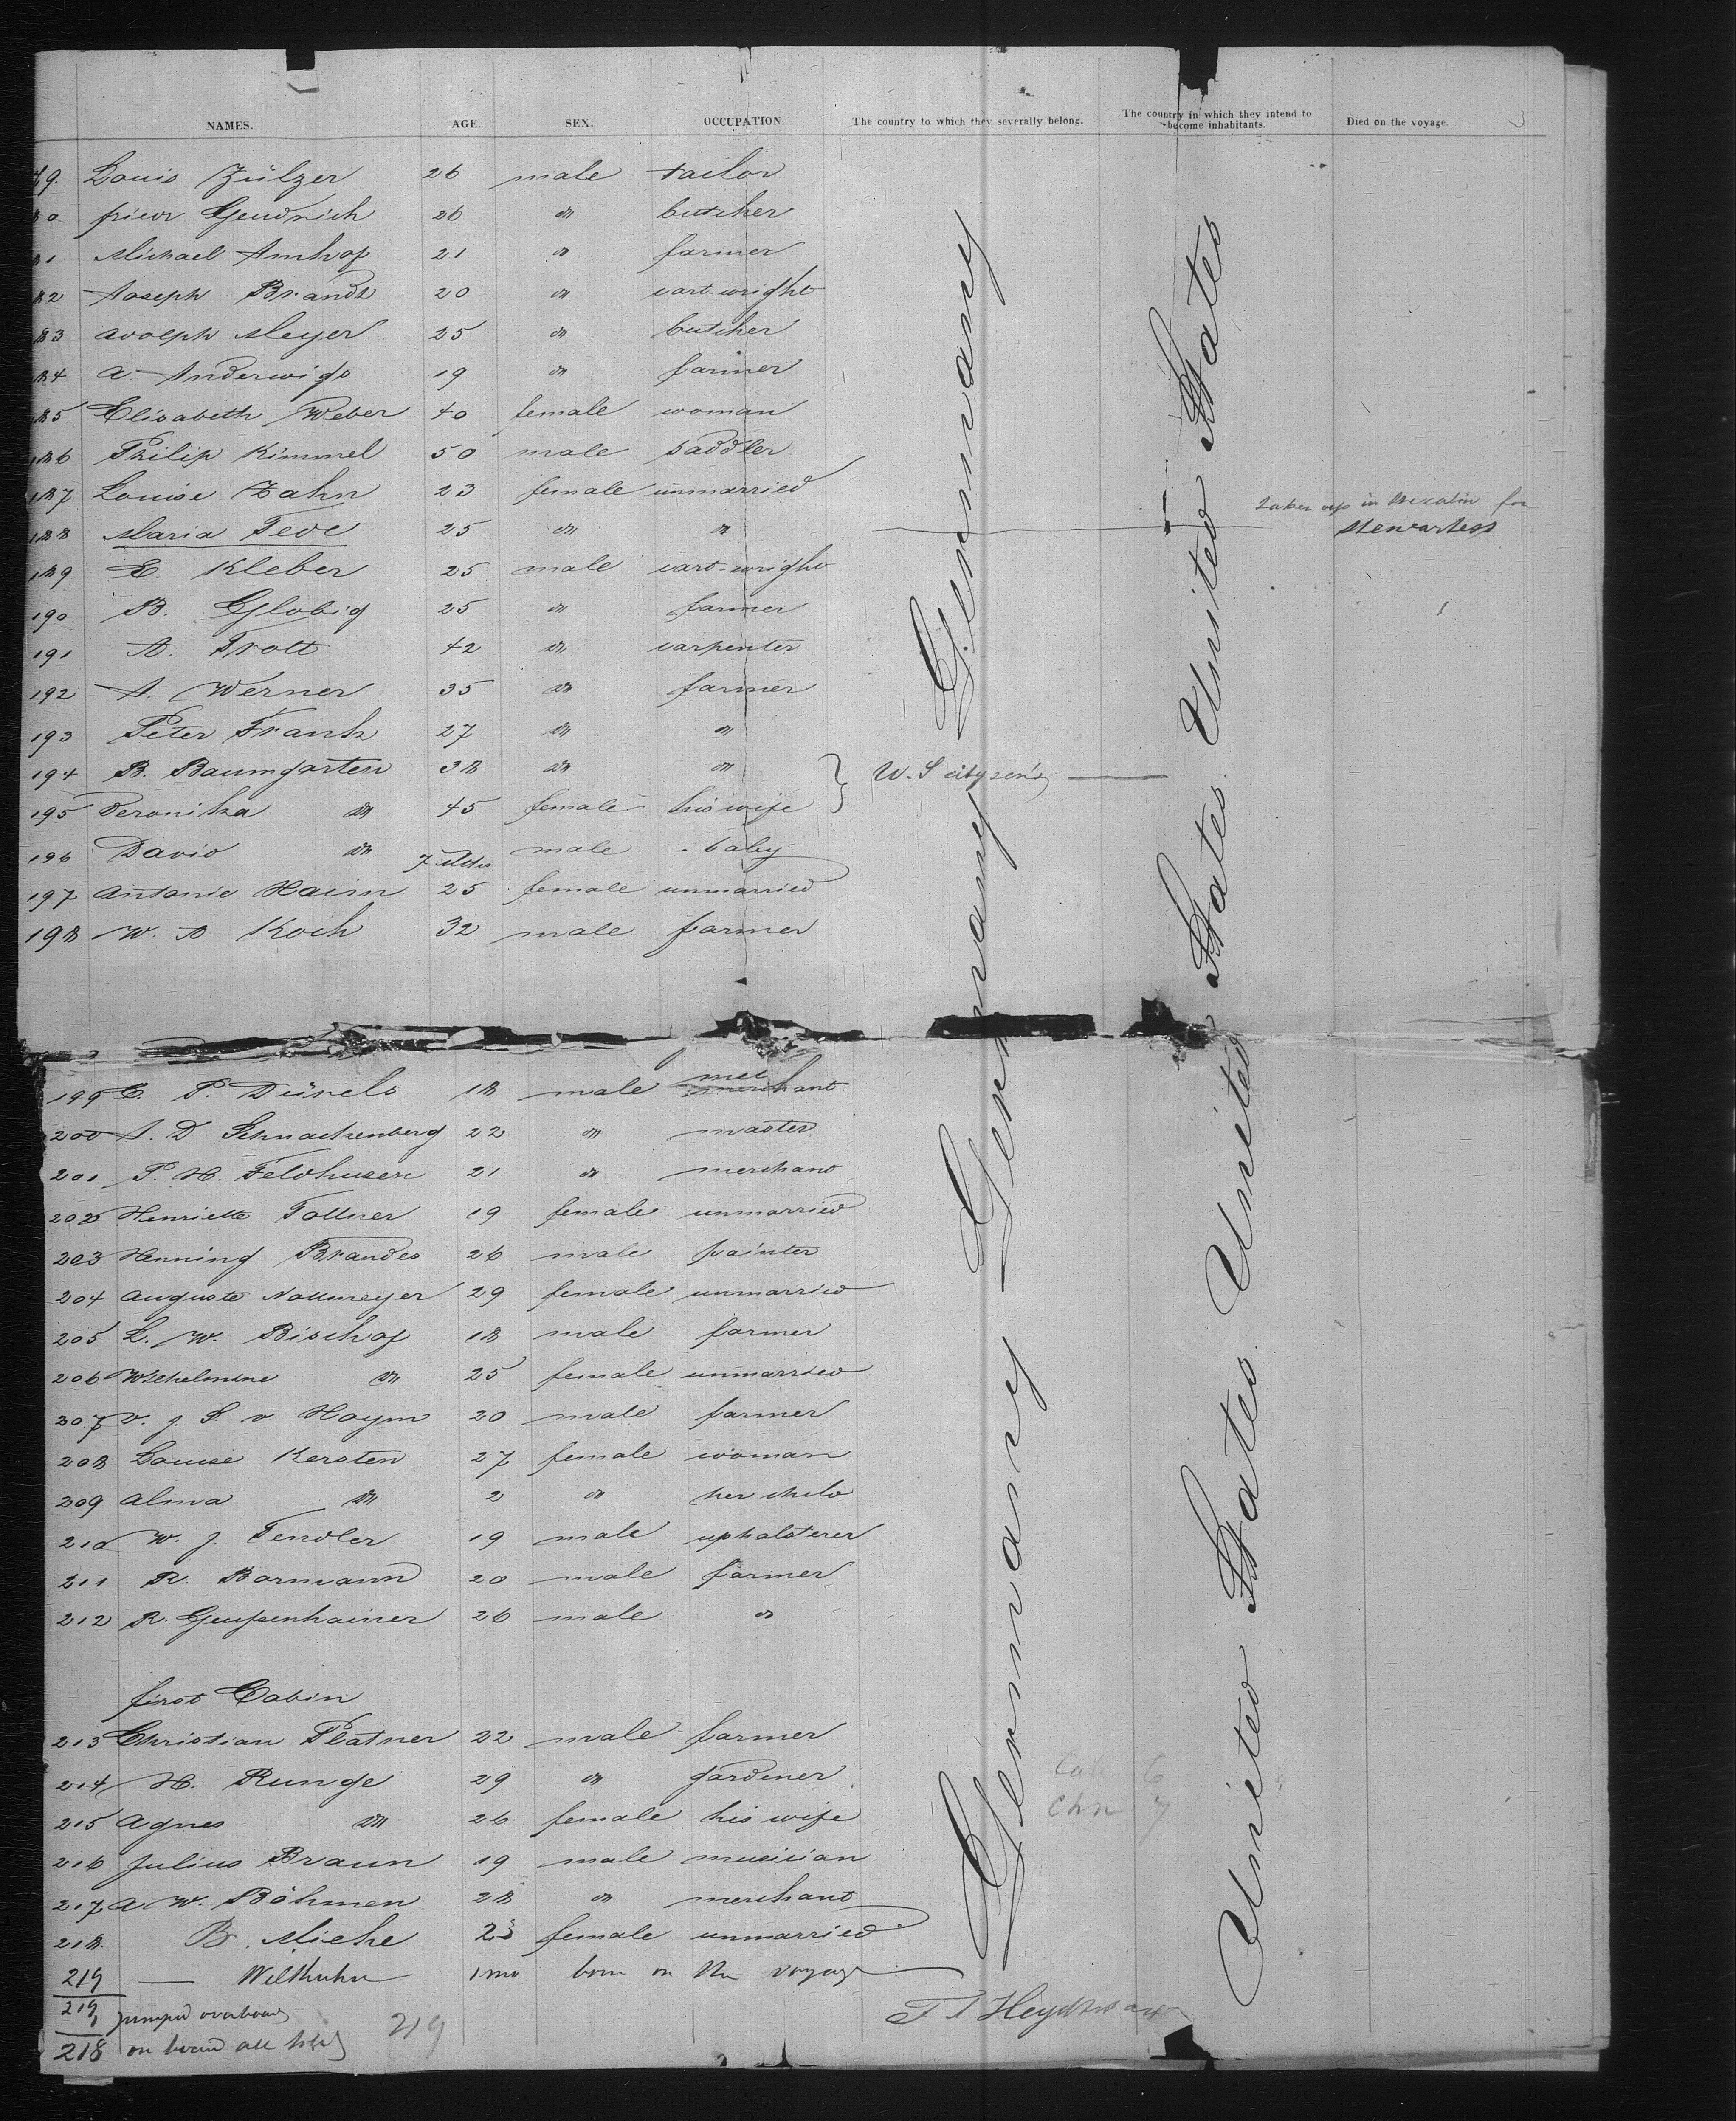 NAMES. AGE. SEX. OCCUPATION. The country to which they severally belong. The country in which they intend to become inhabitants. Died on the voyage.
79. Louis Zülzer 26 male tailor
friedr Gendrich 26 do butcher
81 Michael Amhof 21 do farmer
82 Joseph Brandt 20 do cart-wright
83 Adolph Meyer 25 do butcher
84 A. Anderwigs 19 do farmer
185 Elisabeth Weber 40 female woman
186 Philip Kimmel 50 male saddler
187 Louise Zahn 23 female unmarried
188 Maria Tede 25 do do taken up in the cabin for stewardess
189 E. Kleber 25 male cart-wright
190 B. Globig 25 do farmer
191 A. Trott 42 do carpenter
192 A. Werner 35 do farmer
193 Peter Frank 27 do do
194 B. Baumgarten 38 do do } U. S cityzen's
195 Veronika do 45 female his wife
196 David do 7 Mths male baby
197 Antonie Haim 25 female unmarried
198 W. A Koch 32 male farmer
199 C. P. Dürels 18 male merchant
200 A. D Schnackenberg 22 do master
201 P. H. Feldhusen 21 do merchant
202 Henriette Tollner 19 female unmarried
203 Henning Brandes 26 male painter
204 Auguste Nollmeyer 29 female unmarried
205 L. W. Bischof 18 male farmer
206 Wilhelmine do 25 female unmarried
207 v. j. S. v Hoym 20 male farmer
208 Louise Kersten 27 female woman
209 Alma do 2 do her child
210 W. J. Tendler 19 male upholsterer
211 R. Bormann 20 male farmer
212 R. Geussenhainer 26 male do
first Cabin
213 Christian Platner 22 male farmer
214 H. Runge 29 do gardener
215 Agnes do 26 female his wife
216 Julius Braun 19 male musician
217 A W. Böhmen 28 do merchant
218. B. Miehe 23 female unmarried
219 — Welthuhn 1 mo born on the voyage
219
1 jumped overboard
218 on board all told
219
Germany Germany Germany Germany
United States. United States. United States. United States
Cab 6
Chn 7